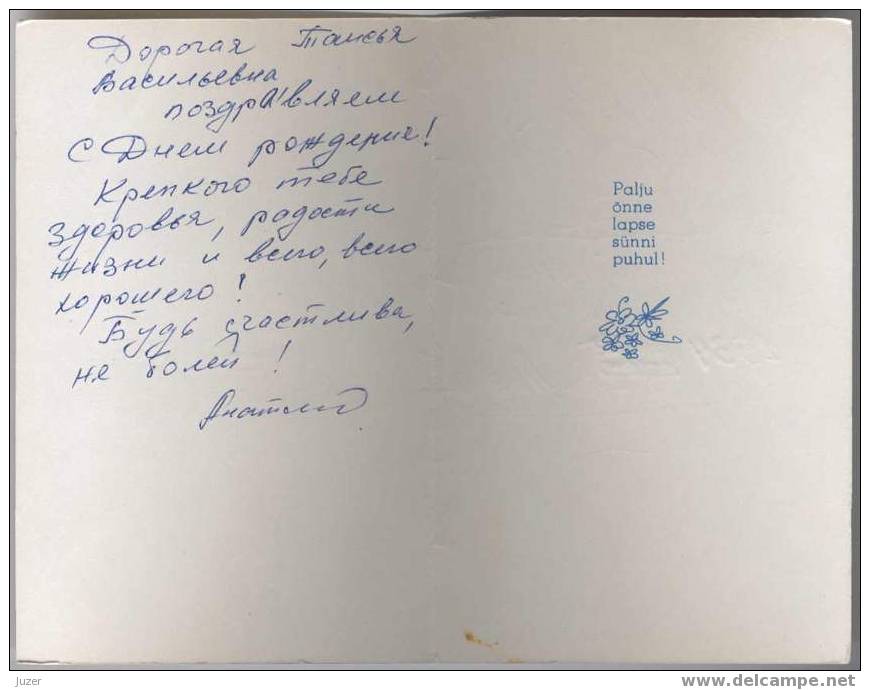 Дорогая Таисья
Васильевна
поздравляем
с Днем рождение!
Крепкого тебе
здоровья, радости
жизни и всего, всего
хорошего!
Будь счастлива,
не болей!
Анатолий
Palju
õnne
lapse
sünni
puhul!
juzer
www.delcampe.net